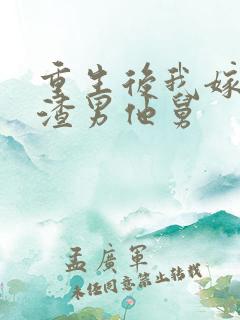 重生後我嫁
渣男他舅
孟廣軍
未經同意禁止轉載